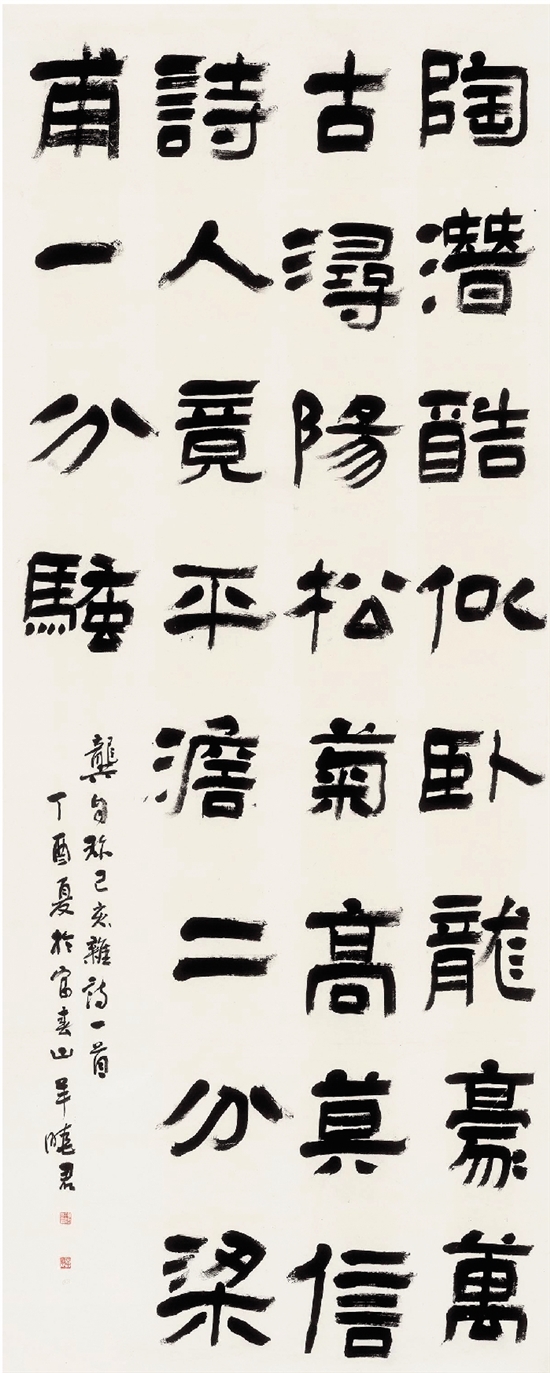 陶潛酷似卧龍豪萬
古潯陽松菊高莫信
詩人竟平澹二分梁
甫一分騷
龔自珍己亥雜詩一首
丁酉夏於富春山羊曉君